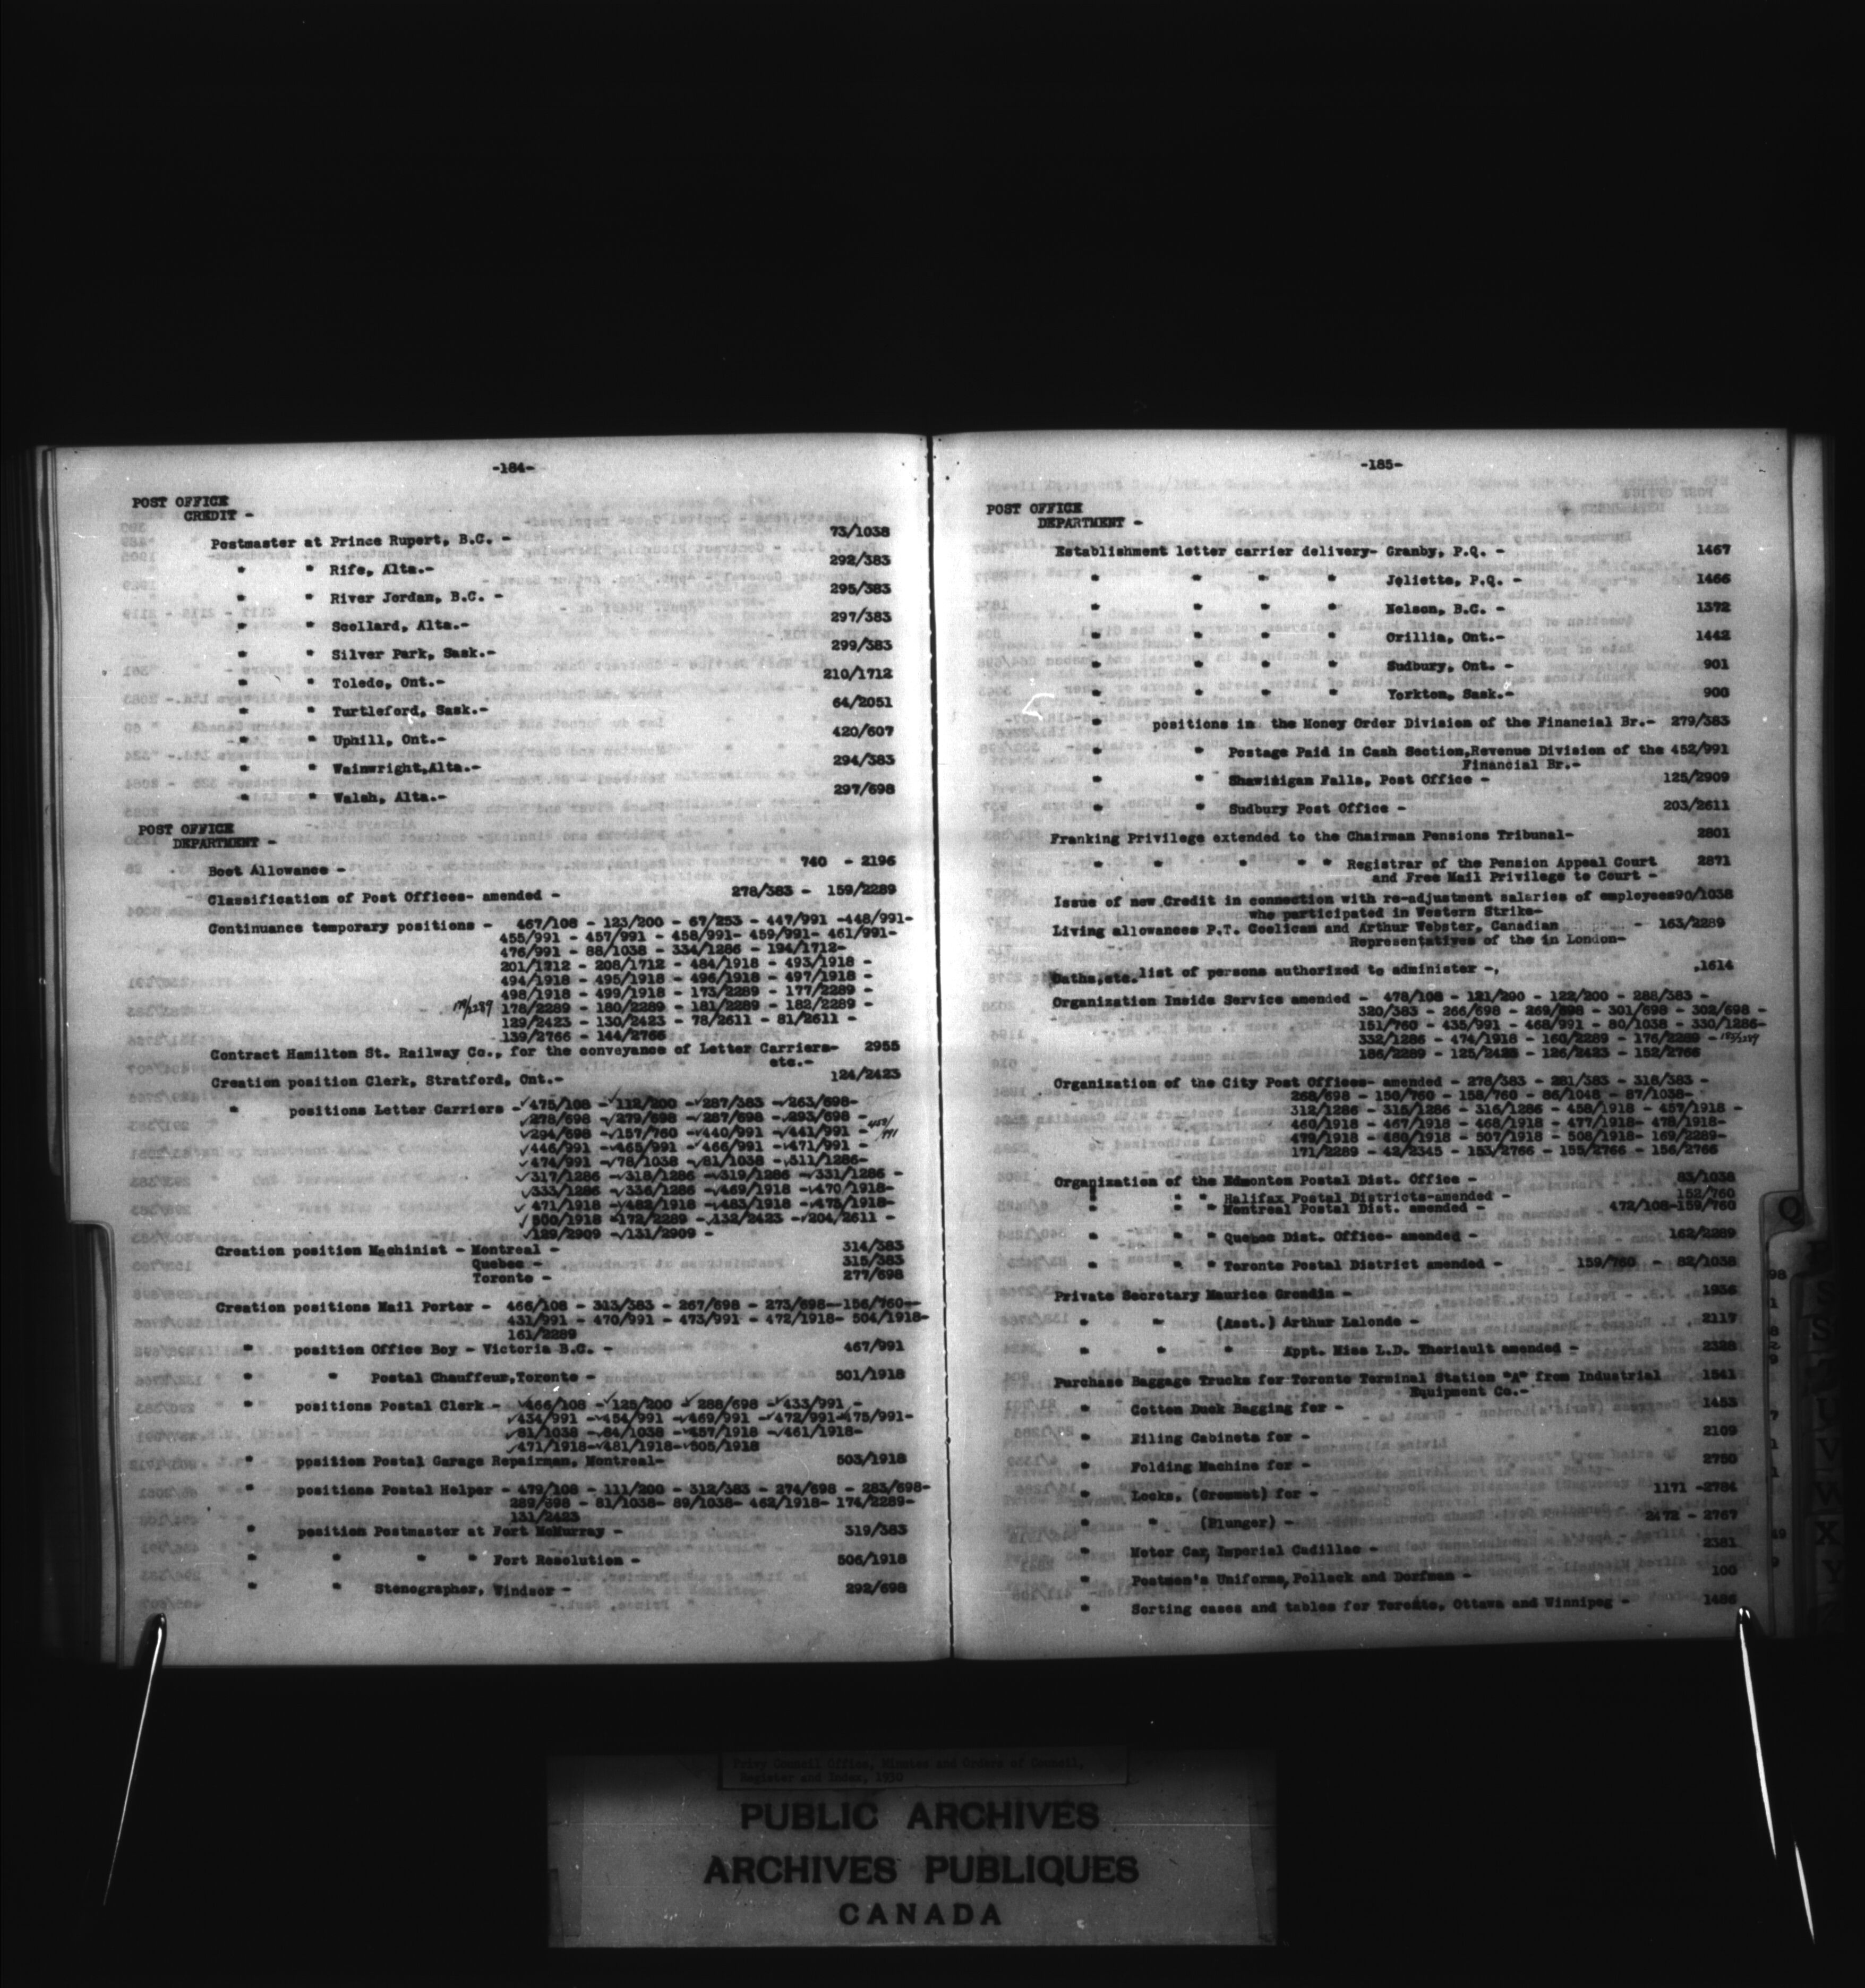 -184-
POST OFFICE
CREDIT -
Postmaster at Prince Rupert, B.C. - 73/1038
" " Rife, Alta.- 292/383
" " River Jordan, B.C. - 295/383
" " Scollard, Alta.- 297/383
" " Silver Park, Sask.- 299/383
" " Toledo, Ont.- 210/1712
" " Turtleford, Sask.- 64/2051
" " Uphill, Ont.- 420/607
" " Wainwright,Alta.- 294/383
" " Walsh, Alta.- 297/698
POST OFFICE
DEPARTMENT -
Boot Allowance - 740 - 2196
Classification of Post Offices- amended - 278/383 - 159/2289
Continuance temporary positions - 467/108 - 123/200 - 67/253 - 447/991 -448/991-
455/991 - 457/991 - 458/991- 459/991- 461/991-
476/991 - 88/1038 - 334/1286 - 194/1712-
201/1712 - 208/1712 - 484/1918 - 493/1918 -
494/1918 - 495/1918 - 496/1918 - 497/1918 -
498/1918 - 499/1918 - 173/2289 - 177/2289 -
179/2289 178/2289 - 180/2289 - 181/2289 - 182/2289 -
129/2423 - 130/2423 - 78/2611 - 81/2611 -
139/2766 - 144/2766
Contract Hamilton St. Railway Co., for the conveyance of Letter Carriers- 2955
etc.-
Creation position Clerk, Stratford, Ont.- 124/2423
" positions Letter Carriers - 475/108 - 112/200 - 287/383 - 263/698-
278/698 - 279/698 - 287/698 - 293/698 -
294/698 - 157/760 - 440/991 - 441/991 -
446/991 - 465/991 - 466/991 - 471/991 -
474/991 - 78/1038 - 81/1038 - 311/1286-
317/1286 - 318/1286 - 319/1286 - 331/1286 -
333/1286 - 336/1286 - 469/1918 - 470/1918-
471/1918 - 482/1918 - 483/1918 - 475/1918-
500/1918 - 172/2289 - 132/2423 - 204/2611 -
129/2909 - 131/2909 -
Creation position Machinist - Montreal - 314/383
Quebec - 315/383
Toronto - 277/698
Creation positions Mail Porter - 466/108 - 313/383 - 267/698 - 273/698--156/760--
431/991 - 470/991 - 473/991 - 472/1918- 504/1918-
161/2289
" position Office Boy - Victoria B.C. - 467/991
" " Postal Chauffeur,Toronto - 501/1918
" positions Postal Clerk - 466/108 - 125/200 - 288/698 - 433/991 -
434/991 - 454/991 - 469/991 - 472/991-475/991-
81/1038 - 84/1038 - 457/1918 - 461/1918-
471/1918- 481/1918- 505/1918
" position Postal Garage Repairman, Montreal- 503/1918
" positions Postal Helper - 479/108 - 111/200 - 312/383 - 274/698 - 283/698-
289/698 - 81/1038- 89/1038- 462/1918- 174/2289-
131/2423
" position Postmaster at Fort McMurray - 319/383
" " " " Fort Resolution - 506/1918
" " Stenographer, Windsor - 292/698
-185-
POST OFFICE
DEPARTMENT -
Establishment letter carrier delivery- Granby, P.Q. - 1467
" " " " Joliette, P.Q. - 1466
" " " " Nelson, B.C. - 1372
" " " " Orillia, Ont.- 1442
" " " " Sudbury, Ont. - 901
" " " " Yorkton, Sask.- 900
" positions in the Money Order Division of the Financial Br.- 279/383
" " Postage Paid in Cash Section,Revenue Division of the 452/991
Financial Br.-
" " Shawinigan Falls, Post Office - 125/2909
" " Sudbury Post Office - 203/2611
Franking Privilege extended to the Chairman Pensions Tribunal- 2801
" " " " " Registrar of the Pension Appeal Court 2871
and Free Mail Privilege to Court -
Issue of new Credit in connection with re-adjustment salaries of employees90/1038
who participated in Western Strike-
Living allowances P.T. Coolican and Arthur Webster, Canadian - 163/2289
Representatives of the in London-
Oaths,etc.list of persons authorized to administer -, 1614
Organization Inside Service amended - 478/108 - 121/200 - 122/200 - 288/383 -
320/383 - 266/698 - 269/698 - 301/698 - 302/698 -
151/760 - 435/991 - 468/991 - 80/1038 - 330/1286-
332/1286 - 474/1918 - 160/2289 - 176/2289 -
186/2289 - 125/2423 - 126/2423 - 152/2766
Organization of the City Post Offices- amended - 278/383 - 281/383 - 318/383 -
268/698 - 150/760 - 158/760 - 86/1048 - 87/1038-
312/1286 - 315/1286 - 316/1286 - 458/1918 - 457/1918 -
460/1918 - 467/1918 - 468/1918 - 477/1918- 478/1918-
479/1918 - 480/1918 - 507/1918 - 508/1918- 169/2289-
171/2289 - 42/2345 - 153/2766 - 155/2766 - 156/2766
Organization of the Edmonton Postal Dist. Office - 83/1038
" " " Halifax Postal Districts-amended - 152/760
" " " Montreal Postal Dist. amended - 472/108-159/760
" " " Quebec Dist. Office- amended - 162/2289
" " " Toronto Postal District amended - 159/760 - 82/1038
Private Secretary Maurice Grondin - 1936
" " (Asst.) Arthur Lalonde - 2117
" " " Appt. Miss L.D. Theriault amended - 2328
Purchase Baggage Trucks for Toronto Terminal Station "A" from Industrial 1541
Equipment Co.-
" Cotton Duck Bagging for - 1453
" Filing Cabinets for - 2109
" Folding Machine for - 2750
" Locks, (Grommet) for - 1171 -2784
" " (Plunger) - 2472 - 2767
" Motor Car, Imperial Cadillac - 2381
" Postmen's Uniforms,Pollack and Dorfman - 100
" Sorting cases and tables for Toronto, Ottawa and Winnipeg - 1486
Q
V
W
X
Y
Privy Council Office, Minutes and Orders of Council,
Register and Index, 1930
PUBLIC ARCHIVES
ARCHIVES PUBLIQUES
CANADA